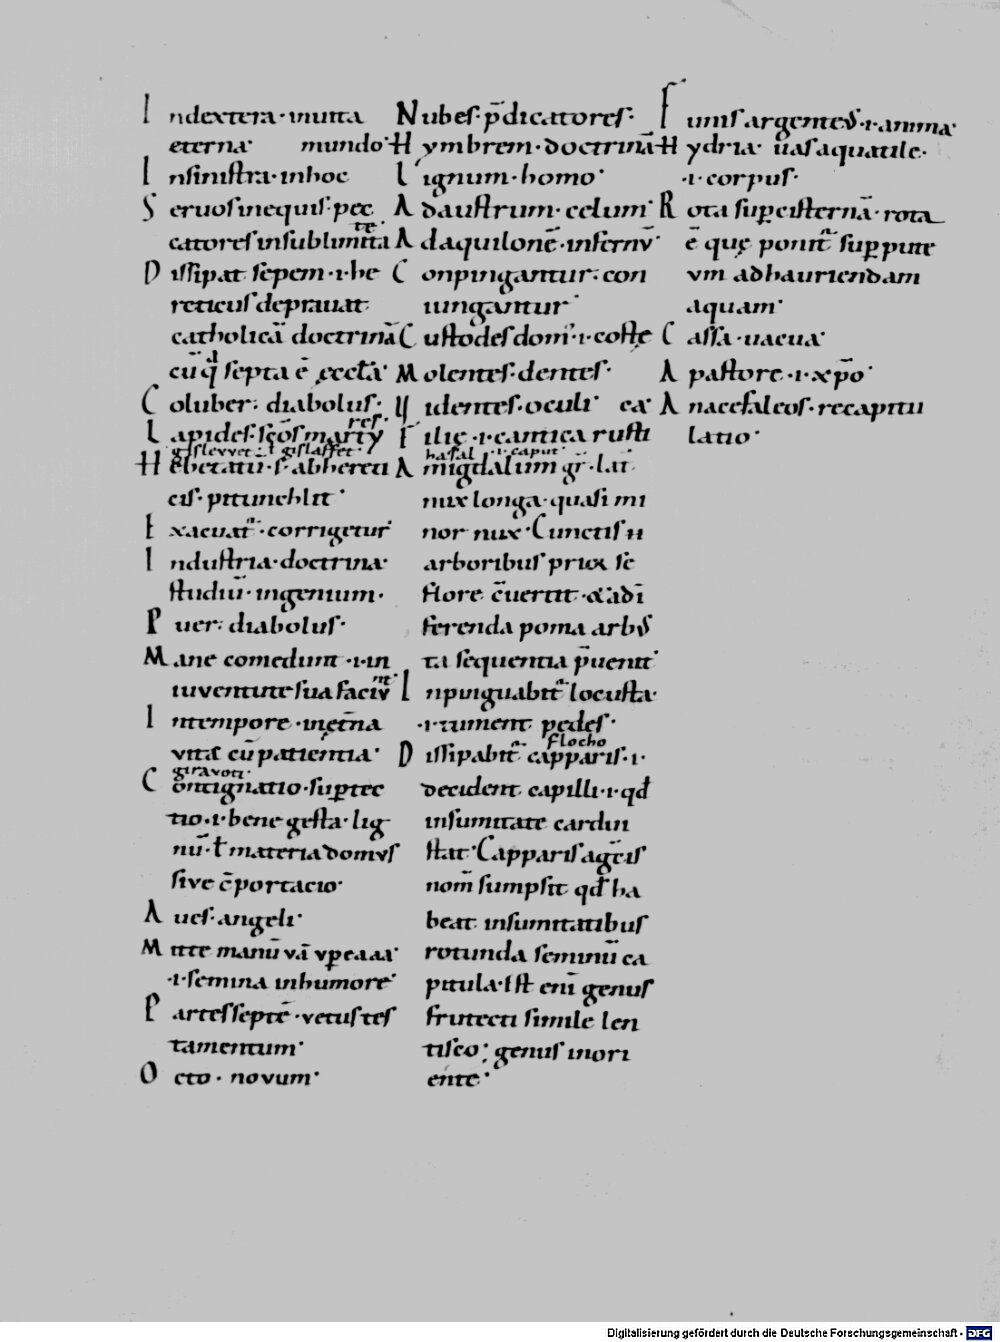 In dextera · in uita
eterna · mundo ·
In sinistra · in hoc
Seruos in equis · pec
catores in sublimita te
Dissipat sepem · i · he
reticus deprauat
catholicā doctrinā
Coluber · diabolus ·
Lapides · sc̄os marty res ·
gislevvet · ł gislaffet ·
Hebetatū · s · ab hereti
cis ·
Exacuat᷑ · corrigetur
Industria · doctrina ·
studiū · ingenium ·
Puer · diabolus ·
Mane comedunt · i · in
iuventute sua faciv nt ·
In tempore · in et̄na
vita cū patientia ·
giravoti ·
Contignatio · sup̱tec
tio · i · bene gesta · lig
nū · ł materia domvs
sive c̄portacio ·
Aues · angeli ·
Mitte manū
· i · semina in humore
Partes septē · vetus tes
tamentum ·
Octo · novum ·
Nubes · p̄dicatores ·
Hymbrem · doctrinā
Lignum · homo ·
Ad austrum · celum ·
Ad aquilonē · infernv̄ ·
Conpingantur · con
iungantur ·
Custodes dom᷑ · i · coste
Molentes · dentes ·
Videntes · oculi ca
Filię · i · cantica rusti
hasal · i · caput ·
Amigdalum gr̄ · lat̄
nux longa · quasi mi
nor nux · Cunctis
arboribus se
flore c̄uertit · & ad ī
ferenda poma arbus
ta sequentia p̄uenit
Inpinguabit᷑ locusta ·
· i · tument pedes ·
flocho
Dissipabit᷑ capparis · i ·
decident capilli · i · qđ
in sumitate cardin
stat · Capparis a grecis
nom̄ sumpsit qđ ha
beat in sumitatibus
rotunda seminū ca
pitula · Est enī genus
frutecti simile len
tisco · genus in ori
ente ·
Funis argentevs · i · anima ·
Hydria uas aquatile ·
· i · corpus ·
Rota sup̱ cisternā · rota
ē quę ponit᷑ sup̱ pute
vm ad hauriendam
aquam ·
Cassa · uacua ·
A pastore · i · xp̄o ·
Anacefaleos · recapitu
latio ·
Digitalisierung gefördert durch die Deutsche Forschungsgemeinschaft - DFG